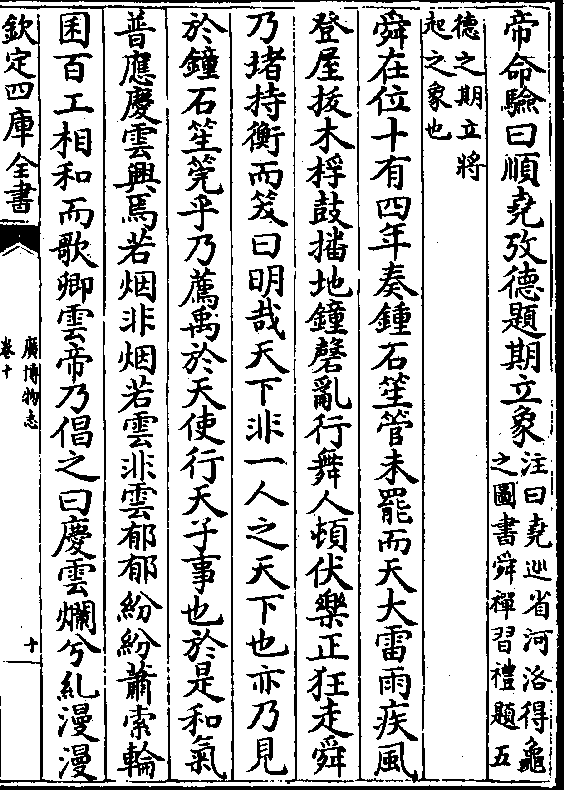 帝命驗曰順堯攷德題期立象注曰堯巡省河洛得龜
之圖書舜禪習禮題五
德之期立將
起之象也
舜在位十有四年奏鍾石笙管未罷而天大雷雨疾風
登屋拔木桴鼓播地鐘磬亂行舞人頓伏樂正狂走舜
乃堵持衡而笑曰明哉天下非一人之天下也亦乃見
於鐘石笙筦乎乃薦禹於天使行天子事也於是和氣
普應慶雲興焉若烟非烟若雲非雲郁郁紛紛蕭索輪
囷百工相和而歌卿雲帝乃倡之曰慶雲爛兮糺漫漫
欽定四庫全書
廣博物志
卷十
十